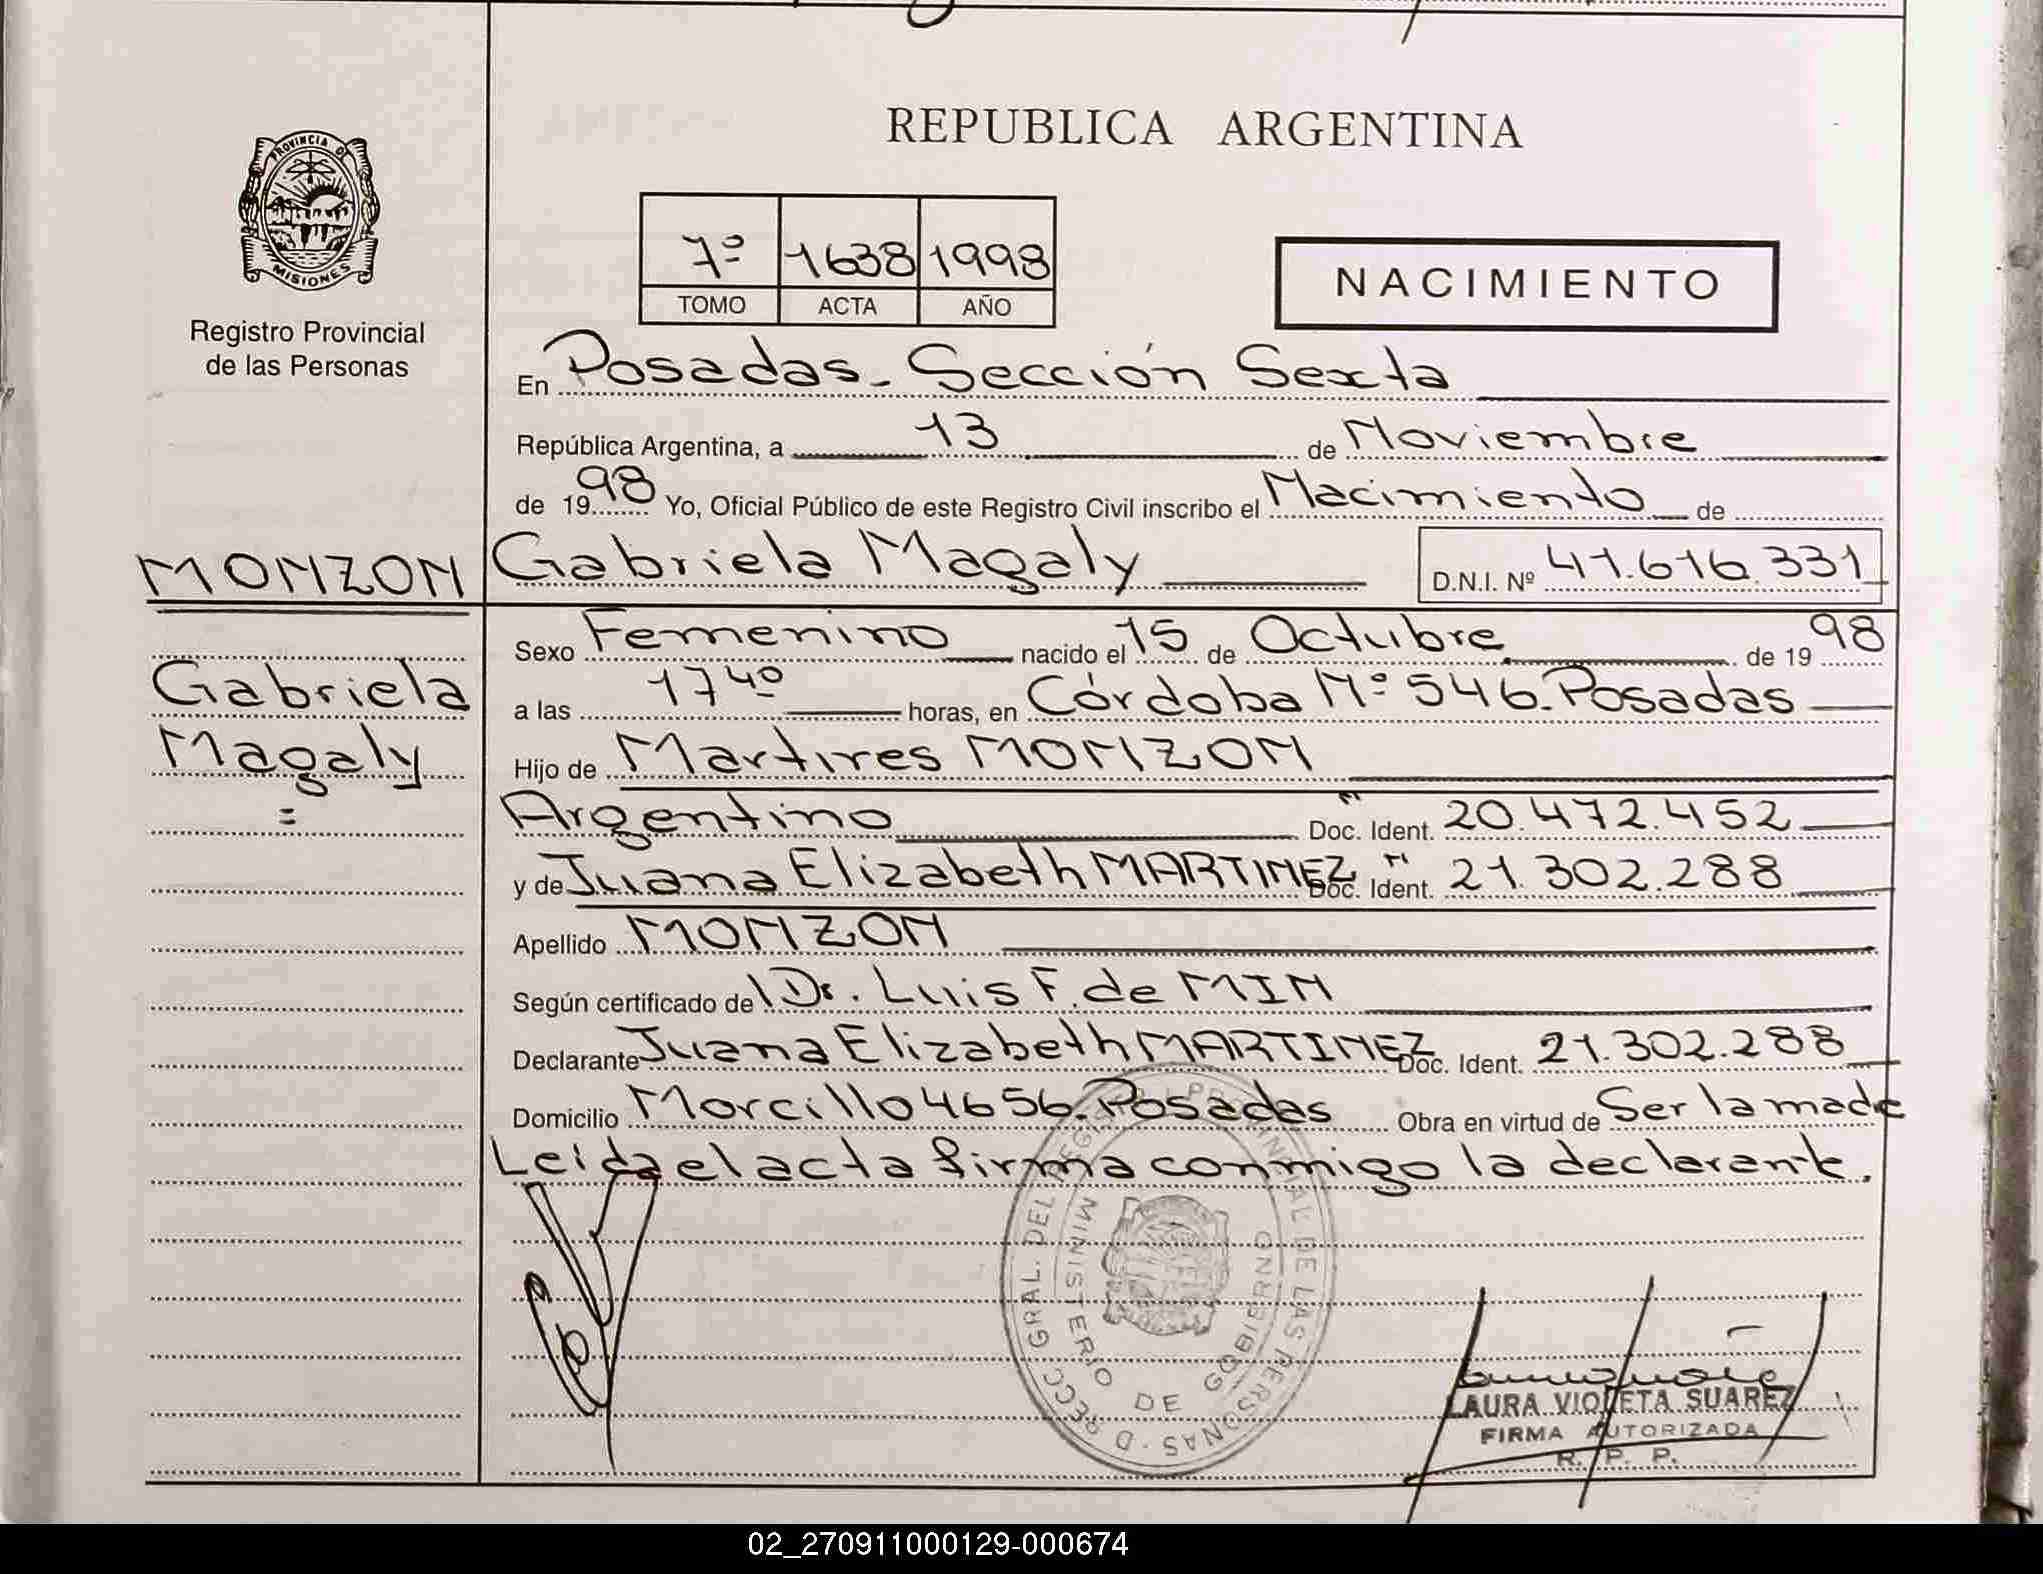 REPUBLICA ARGENTINA
PROVINCIA DE
MISIONES
Registro Provincial
de las Personas
7º 1638 1998
TOMO ACTA AÑO
NACIMIENTO
En Posadas. Sección Sexta
República Argentina, a 13 de Noviembre
de 1998 Yo, Oficial Público de este Registro Civil inscribo el Nacimiento de
MONZON Gabriela Magaly D.N.I. Nº 41.616.331
Sexo Femenino nacido el 15 de Octubre de 1998
Gabriela
a las 17 40 horas, en Córdoba Nº 546. Posadas
Magaly
Hijo de Martires MONZON
=
Argentino Doc. Ident. 20.472.452
y de Juana Elizabeth MARTINEZ Doc. Ident. 21.302.288
Apellido MONZON
Según certificado de Dr. Luis F. de MIN
Declarante Juana Elizabeth MARTINEZ Doc. Ident. 21.302.288
Domicilio Morcillo 4656. Posadas Obra en virtud de Ser la madre
Leída el acta firma conmigo la declarante.
GRAL. DEL REGISTRO PROVINCIAL DE LAS PERSONAS
MINISTERIO DE GOBIERNO
LAURA VIOLETA SUAREZ
FIRMA AUTORIZADA
R. P. P.
02_270911000129-000674